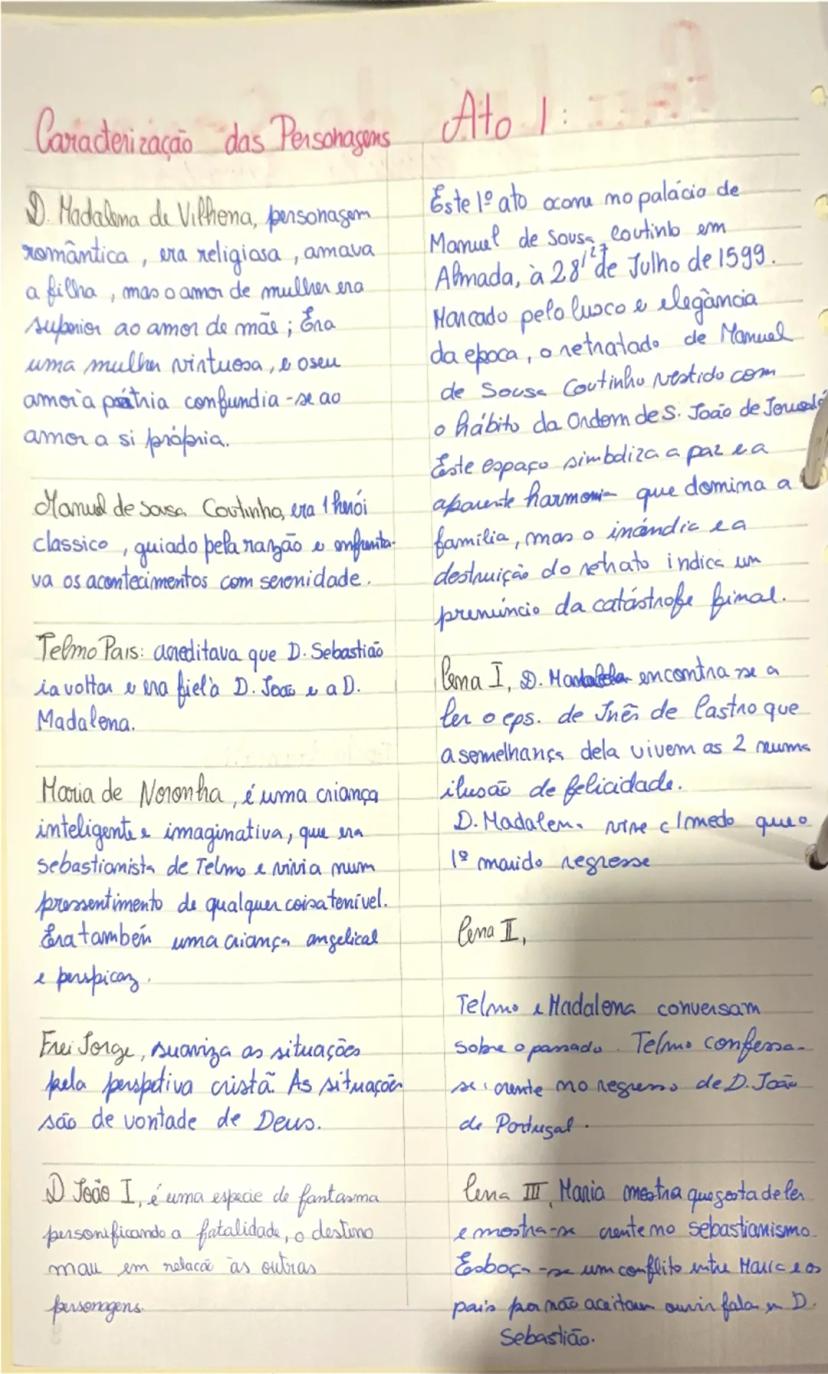 Caracterização das Personagens
D. Madalena de Vilhena, personagem
romântica, era religiosa, amava
a filha, mas o amor de mulher era
superior ao amor de mãe; Era
uma mulher virtuosa, e o seu
amor à pátria confundia-se ao
amor a si própria.
Manuel de Sousa Coutinho, era 1 herói
classico, guiado pela razão e enfrenta-
va os acontecimentos com serenidade.
Telmo Pais: acreditava que D. Sebastião
ia voltar e era fiel à D. João e a D.
Madalena.
Maria de Noronha, é uma criança
inteligente e imaginativa, que era
sebastianista de Telmo e vivia num
pressentimento de qualquer coisa terrível.
Era também uma criança angelical
e perspicaz.
Frei Jorge, suaviza as situações
pela perspetiva cristã. As situações
são de vontade de Deus.
D João I, é uma especie de fantasma
personificando a fatalidade, o destino
mau em relação às outras
personagens.
Ato 1:
Este 1º ato ocorre no palácio de
Manuel de Sousa Coutinho em
Almada, à 28/27 de Julho de 1599.
Marcado pelo luxo e elegância
da epoca, o retratado de Manuel
de Sousa Coutinho vestido com
o hábito da Ordem de S. João de
Este espaço simboliza a paz e a
aparente harmonia que domina a
família, mas o incêndio e a
destruição do retrato indica um
prenúncio da catástrofe final.
Cena I, D. encontra se a
ler o eps. de Inês de Castro que
a semelhança dela vivem as 2 numa
ilusão de felicidade.
D. Madalena vive c/ medo que o
1º marido regresse
Cena II,
Telmo e Madalena conversam
sobre o passado. Telmo confessa-
se crente no regresso de D. João
de Portugal.
Cena III, Maria mostra que gosta de ler
e mostra-se crente no sebastianismo.
Esboça-se um conflito entre Maria e os
pais por não aceitam ouvir falar D.
Sebastião.